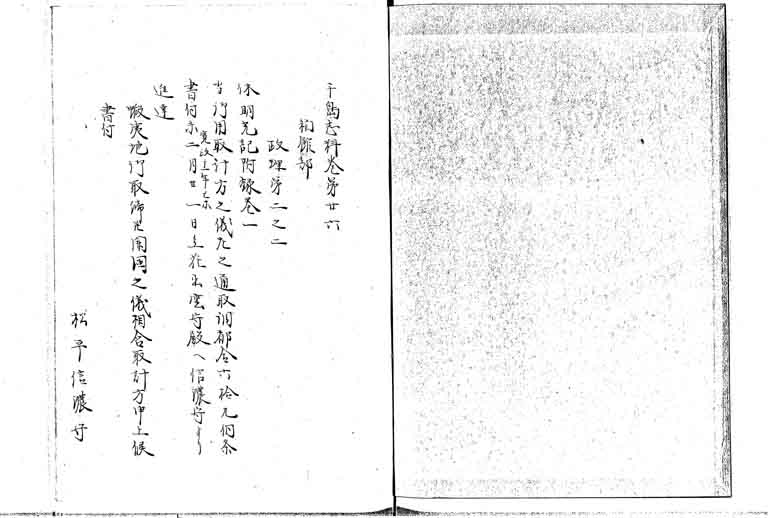 千島志料巻第廿六
拘縻部
政理第二之二
休明光記附録巻一
当御用取計方之儀左之通取調都合六拾九個条
書付 寛政十一年乙未 未二月廿一日立花出雲守殿へ信濃守より
進達
蝦夷地御取締并開国之儀相含取計方申上候
書付
松平信濃守